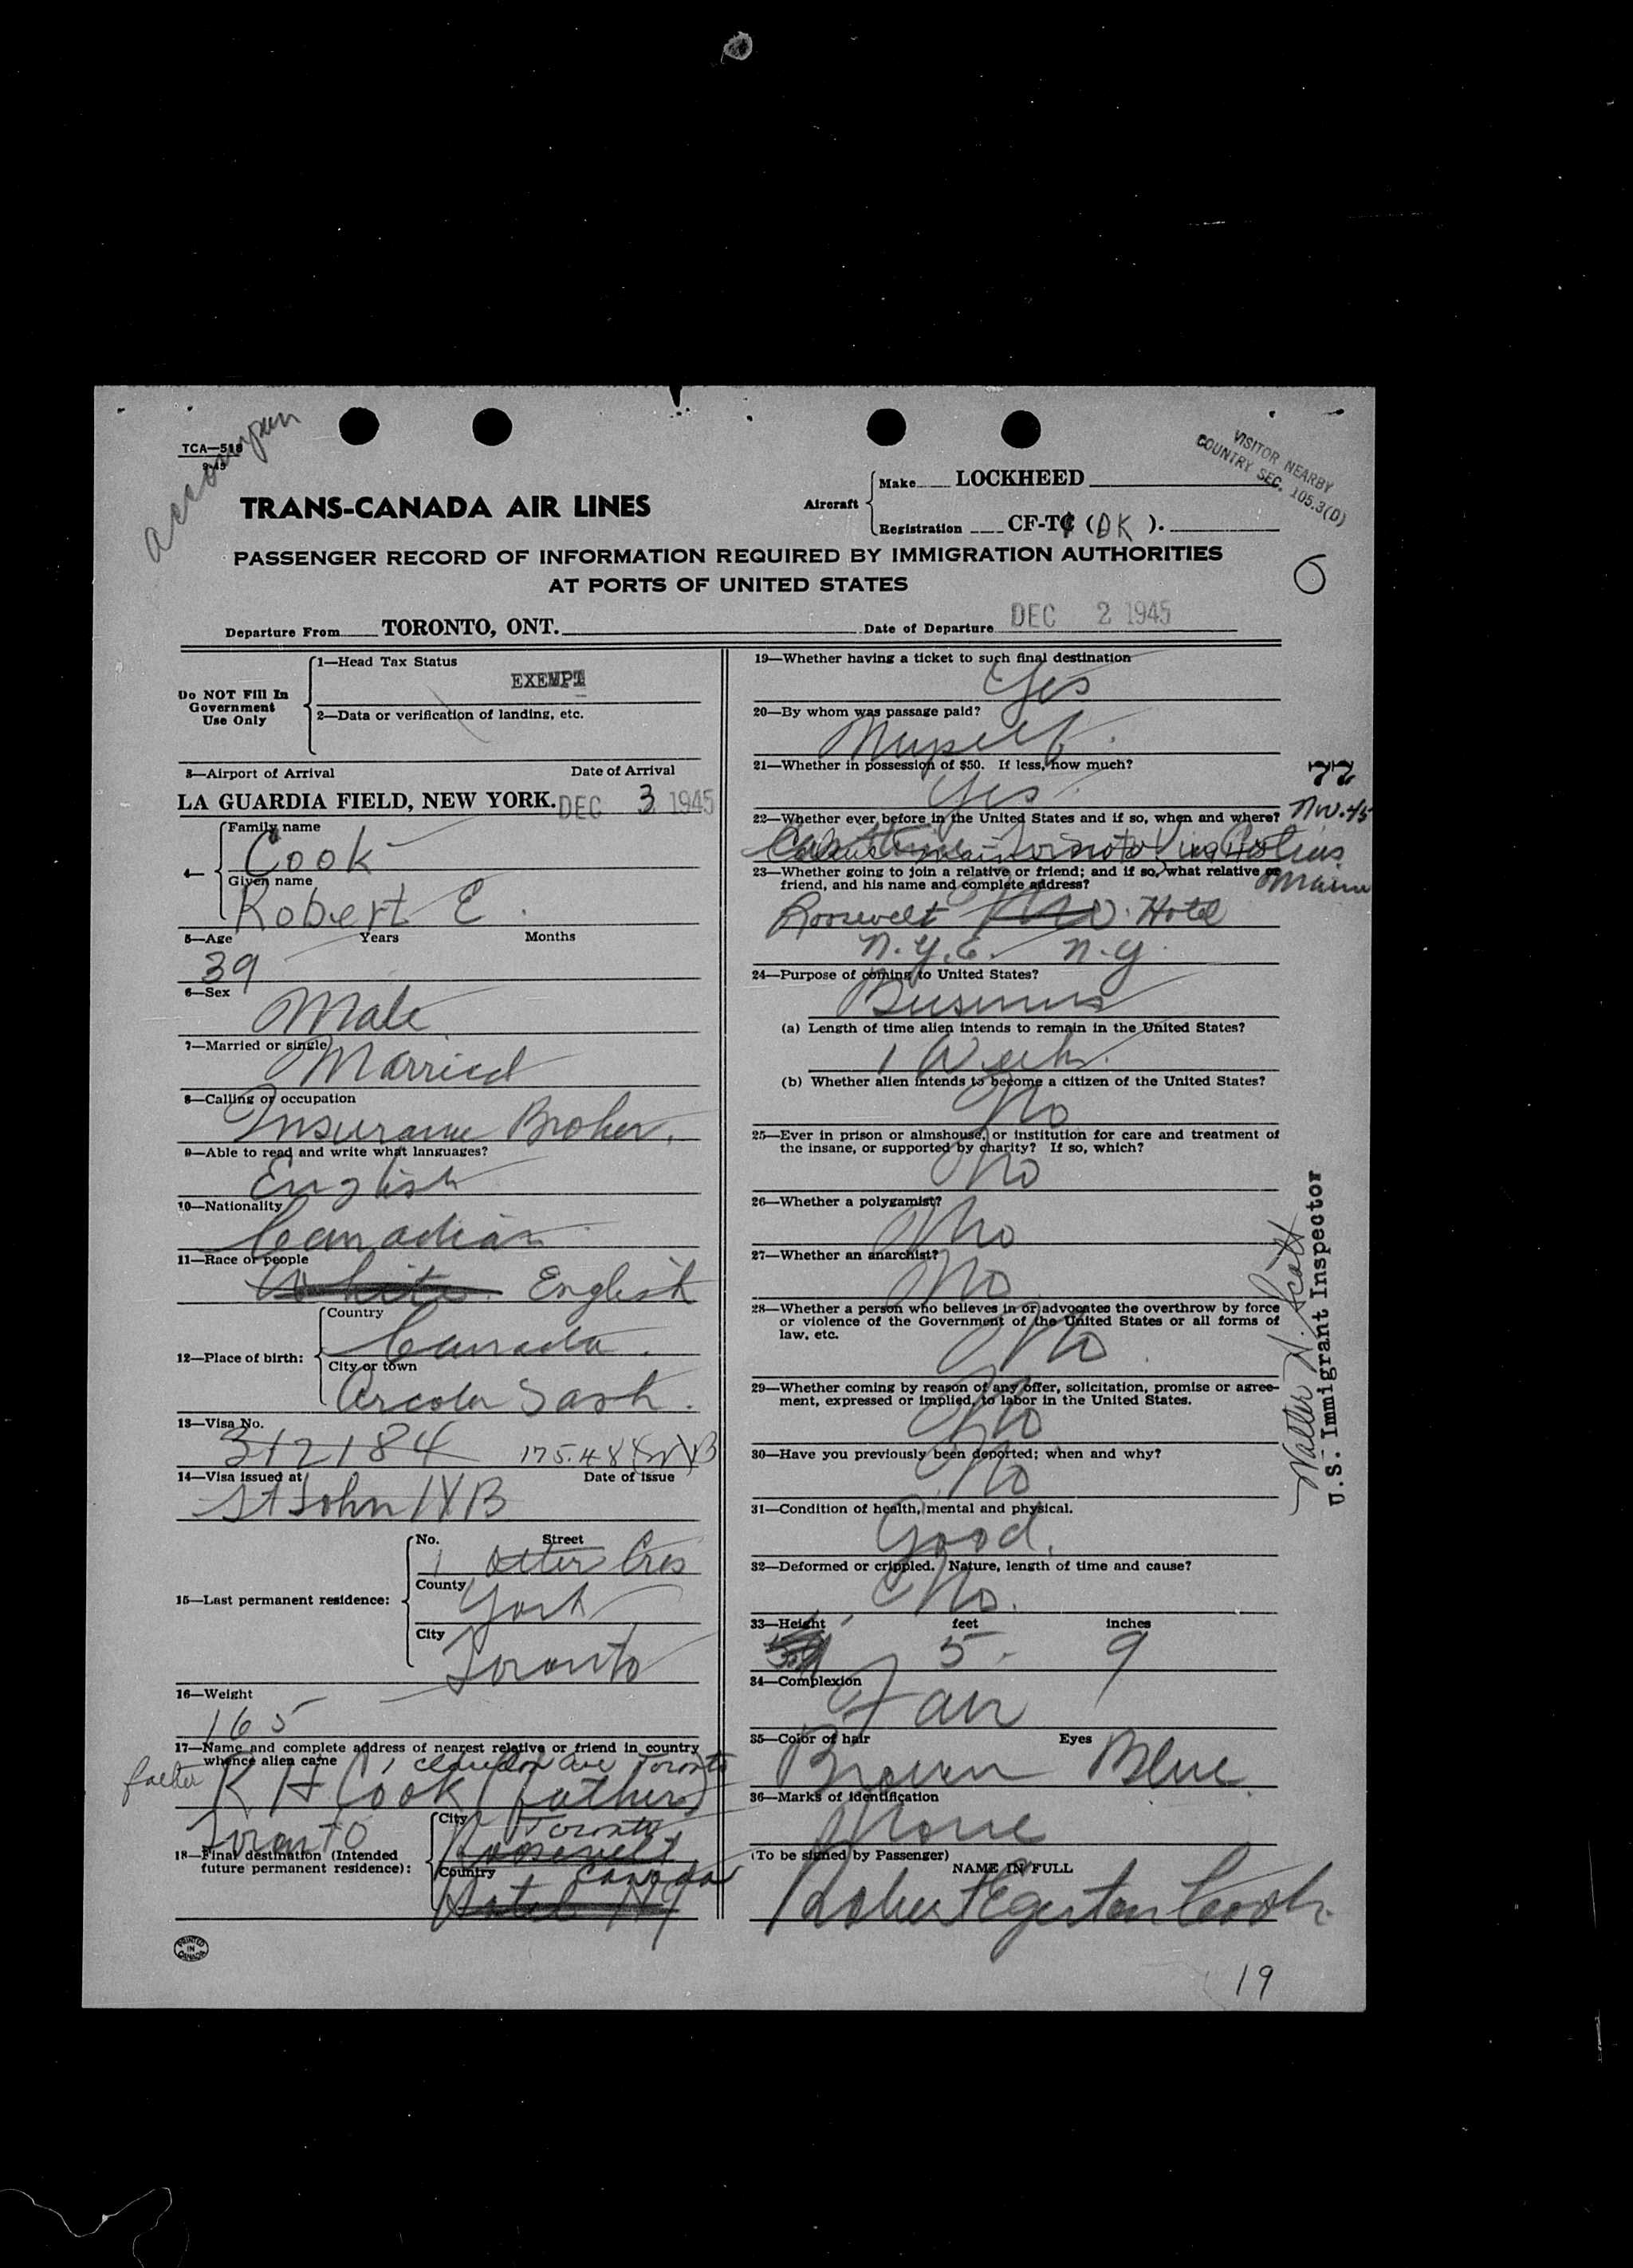 accompan
TCA—518
9-45
VISITOR NEARBY
COUNTRY SEC. 105.3(D)
TRANS-CANADA AIR LINES
Aircraft
Make LOCKHEED
Registration CF-TC (DK ).
PASSENGER RECORD OF INFORMATION REQUIRED BY IMMIGRATION AUTHORITIES
AT PORTS OF UNITED STATES
6
Departure From TORONTO, ONT. Date of Departure DEC 2 1945
Do NOT Fill In
Government
Use Only
1—Head Tax Status
EXEMPT
2—Data or verification of landing, etc.
3—Airport of Arrival Date of Arrival
LA GUARDIA FIELD, NEW YORK. DEC 3 1945
4—
Family name
Cook
Given name
Robert E.
5—Age Years Months
39
6—Sex
Male
7—Married or single
Married
8—Calling or occupation
Insurance Broker.
9—Able to read and write what languages?
English
10—Nationality
Canadian
11—Race or people
White. English
12—Place of birth:
Country
Canada.
City or town
Arcola Sask.
13—Visa No.
312184
14—Visa issued at Date of issue
St John NB
15—Last permanent residence:
No. Street
1 Otter Cres
County
York
City
Toronto
16—Weight
165
17—Name and complete address of nearest relative or friend in country
whence alien came
Ave Toronto
father R H Cook (father)
Toronto
18—Final destination (Intended
future permanent residence):
City
Toronto
Roosevelt
Country
Canada
Hotel NY
PRINTED
IN
CANADA
19—Whether having a ticket to such final destination
Yes
20—By whom was passage paid?
Myself.
21—Whether in possession of $50. If less, how much?
Yes
77
22—Whether ever before in the United States and if so, when and where? Nov. 45
23—Whether going to join a relative or friend; and if so, what relative or
friend, and his name and complete address?
Maine
Roosevelt Hotel
N.Y.C. N.Y.
24—Purpose of coming to United States?
Business
(a) Length of time alien intends to remain in the United States?
1 Week.
(b) Whether alien intends to become a citizen of the United States?
No
25—Ever in prison or almshouse, or institution for care and treatment of
the insane, or supported by charity? If so, which?
No
26—Whether a polygamist?
No
27—Whether an anarchist?
No
28—Whether a person who believes in or advocates the overthrow by force
or violence of the Government of the United States or all forms of
law, etc.
No
29—Whether coming by reason of any offer, solicitation, promise or agree-
ment, expressed or implied, to labor in the United States.
No
30—Have you previously been deported; when and why?
No
31—Condition of health, mental and physical.
Good.
32—Deformed or crippled. Nature, length of time and cause?
No.
33—Height feet inches
5 9
34—Complexion
Fair
35—Color of hair Eyes
Brown Blue
36—Marks of identification
None
(To be signed by Passenger)
NAME IN FULL
Robert Egerton Cook.
Walter N. Scott
U.S. Immigrant Inspector
19